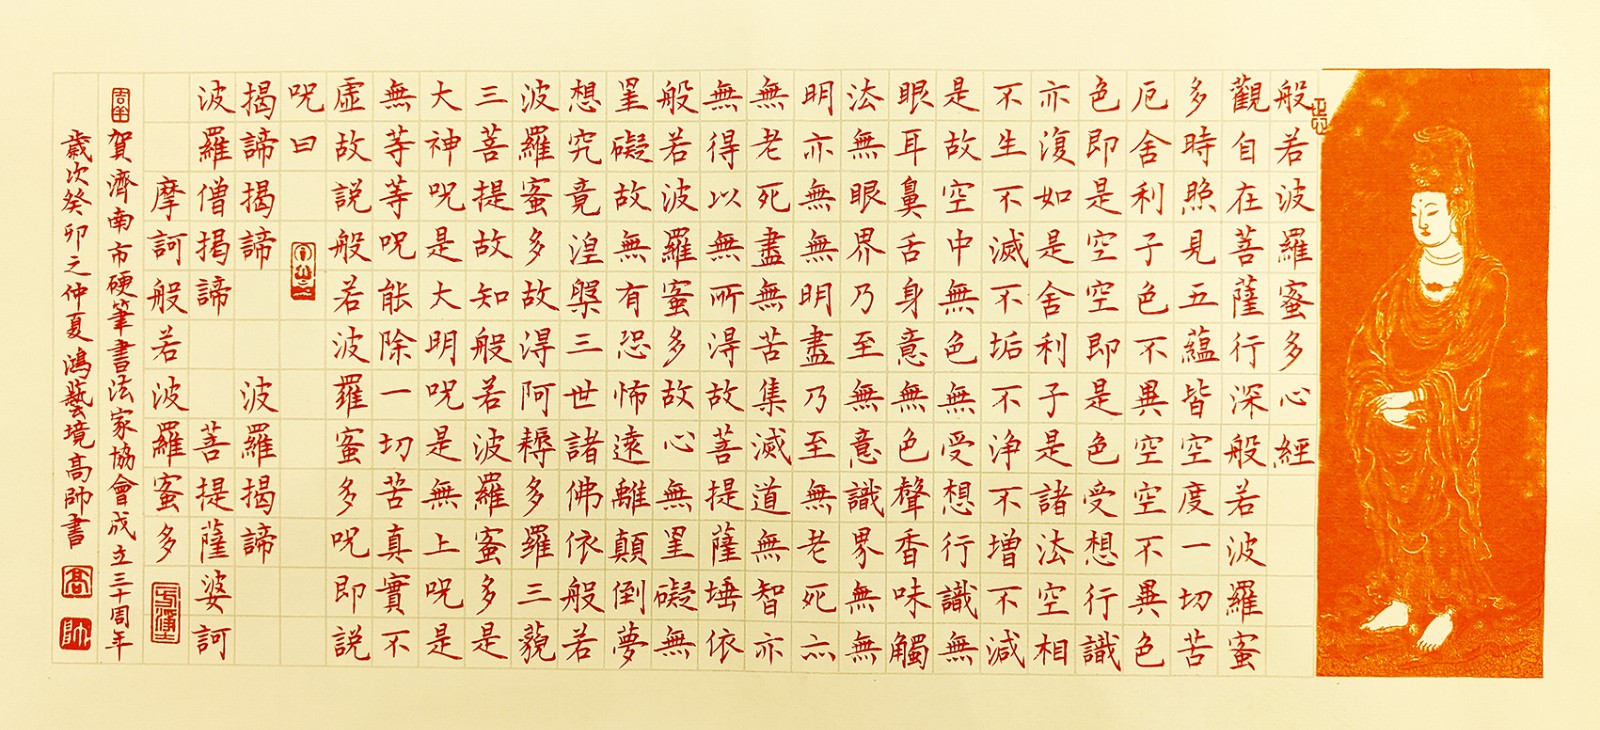 般若波羅蜜多心經
觀自在菩薩行深般若波羅蜜
多時照見五蘊皆空度一切苦
厄舍利子色不異空空不異色
色即是空空即是色受想行識
亦復如是舍利子是諸法空相
不生不滅不垢不淨不增不減
是故空中無色無受想行識無
眼耳鼻舌身意無色聲香味觸
法無眼界乃至無意識界無無
明亦無無明盡乃至無老死亦
無老死盡無苦集滅道無智亦
無得以無所得故菩提薩埵依
般若波羅蜜多故心無罣礙無
罣礙故無有恐怖遠離顛倒夢
想究竟涅槃三世諸佛依般若
波羅蜜多故得阿耨多羅三藐
三菩提故知般若波羅蜜多是
大神咒是大明咒是無上咒是
無等等咒能除一切苦真實不
虛故說般若波羅蜜多咒即說
咒曰
揭諦揭諦 波羅揭諦
波羅僧揭諦 菩提薩婆訶
摩訶般若波羅蜜多
賀濟南市硬筆書法家協會成立三十周年
歲次癸卯之仲夏鴻藝境高帥書
高
帥